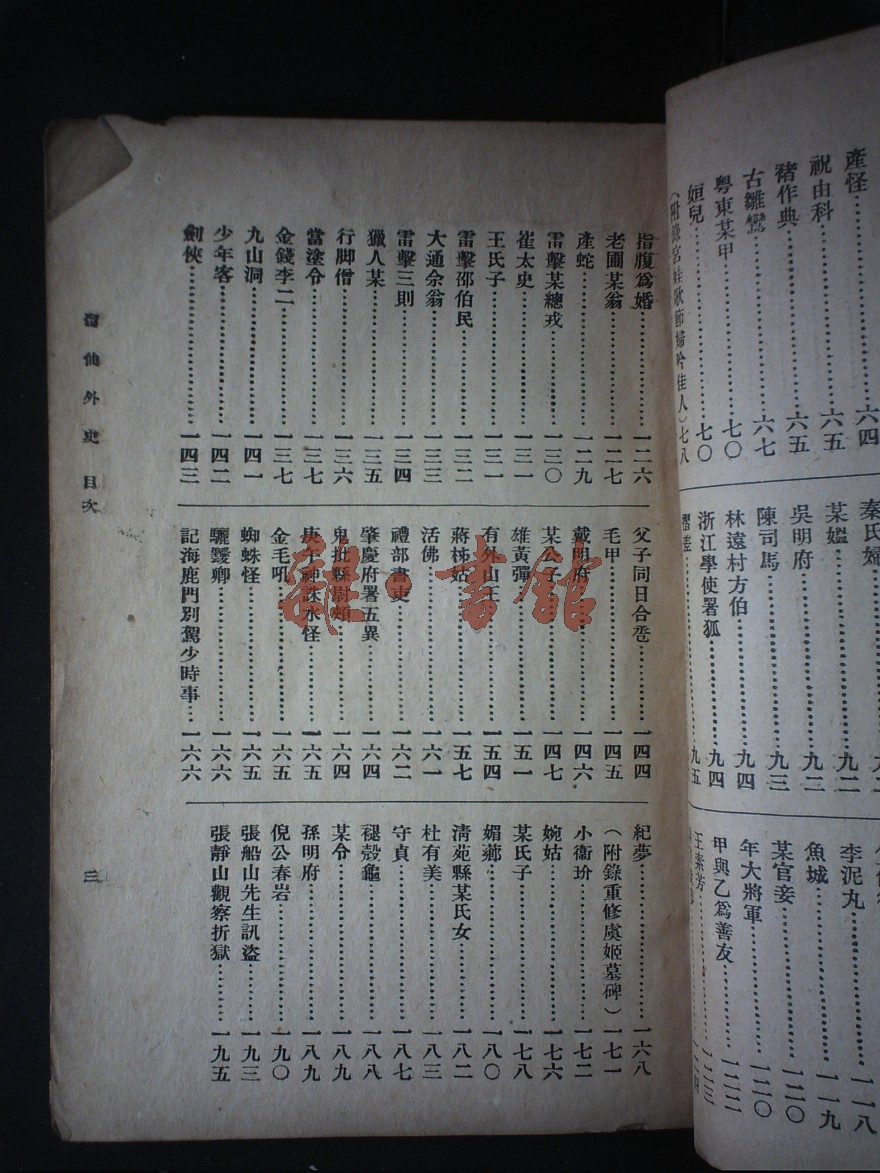 產怪……六四
祝由科……六五
褚作典……六五
古雛鸞……六七
粵東某甲……七〇
姮兒……七〇
秦氏婦
某媼……九二
吳明府……九二
陳司馬……九三
林遠村方伯……九四
浙江學使署狐……九四
九五
李泥丸……一一八
魚城……一一九
某官妾……一二〇
年大將軍……一二〇
甲與乙爲善友……一二二
王素芳……一二三
指腹爲婚……一二六
老圃某翁……一二七
產蛇……一二九
雷擊某總戎……一三〇
崔太史……一三一
王氏子……一三一
雷擊邵伯民……一三二
大通佘翁……一三三
雷擊三則……一三四
獵人某……一三五
行脚僧……一三六
當塗令……一三七
金錢李二……一三七
九山洞……一四一
少年客……一四二
劍俠……一四三
父子同日合巹……一四四
毛甲……一四五
戴明府……一四六
某公子……一四七
雄黃彈……一五一
有外山王……一五四
蔣姊姑……一五七
活佛……一六一
禮部書吏……一六二
肇慶府署五異……一六四
鬼批縣尉頰……一六四
庚午神誅水怪……一六五
金毛吼……一六五
蜘蛛怪……一六五
驪䮷卿……一六六
記海鹿門別駕少時事…一六六
紀夢……一六八
(附錄重修虞姬墓碑)一七一
小衞玠……一七二
婉姑……一七六
某氏子……一七八
媚薌……一八〇
清苑縣某氏女……一八二
杜有美……一八三
守貞……一八七
褪殼龜……一八八
某令……一八九
孫明府……一八九
倪公春岩……一九〇
張船山先生訊盜……一九三
張靜山觀察折獄……一九五
仙外史 目次
三
龍·書館